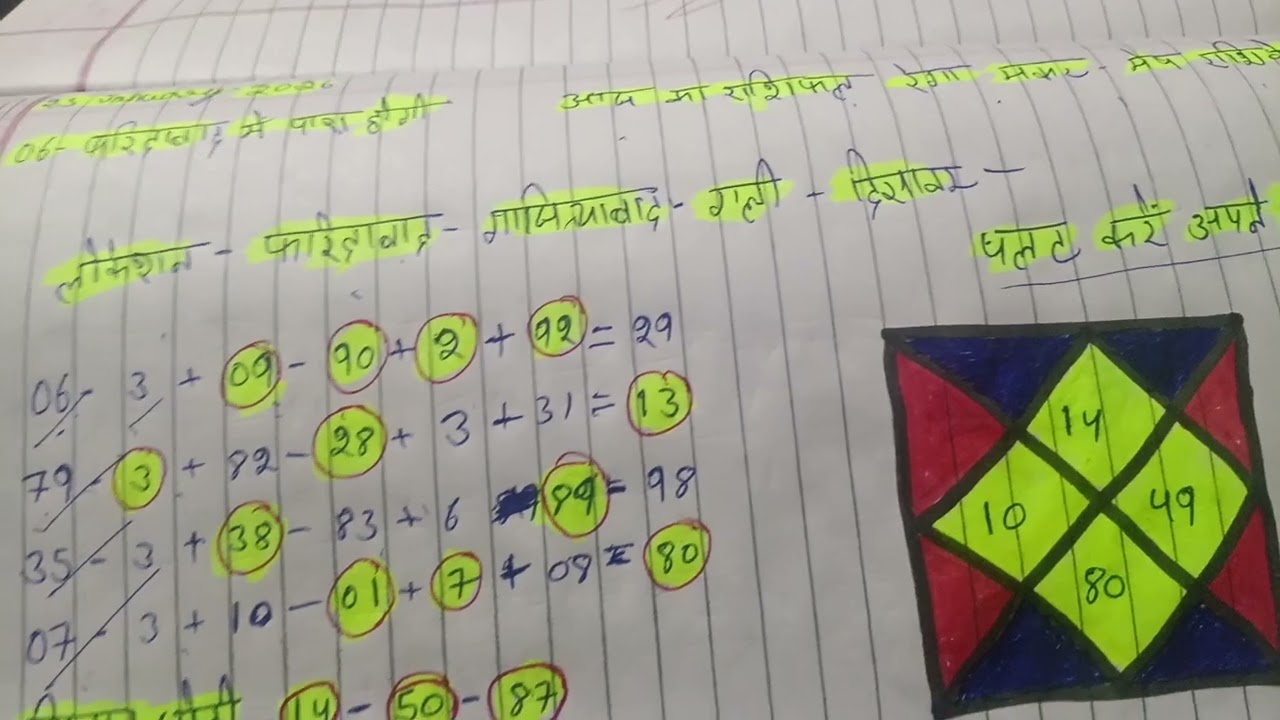 03 January 2026
आज का राशिफल मेष राशि के
06- फरिदाबाद में पास होगी
लोकेशन - फरिदाबाद - गाजियाबाद - गली - दिसावर -
पलट करें अपने
06 - 3 + 09 - 90 + 2 + 92 = 29
79 - 3 + 82 - 28 + 3 + 31 = 13
35 - 3 + 38 - 83 + 6 89 = 98
07 - 3 + 10 - 01 + 7 + 08 = 80
14 - 50 - 87
14
10 49
80